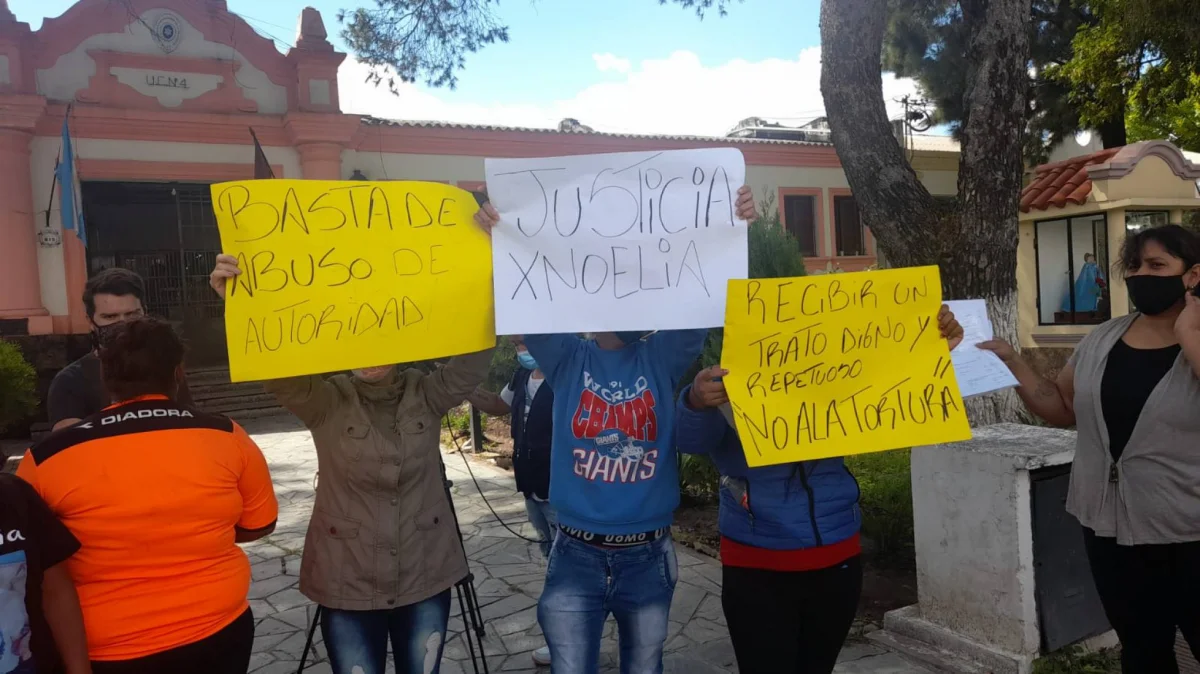 U.C.Nº4
BASTA DE
ABUSO DE
AUTORIDAD
JUSTICIA
XNOELIA
RECIBIR UN
TRATO DIGNO Y
REPETUOSO
"NO A LA TORTURA"
DIADORA
91
WORLD
CHAMPS
GIANTS
GIANTS
UOMO
UOMO